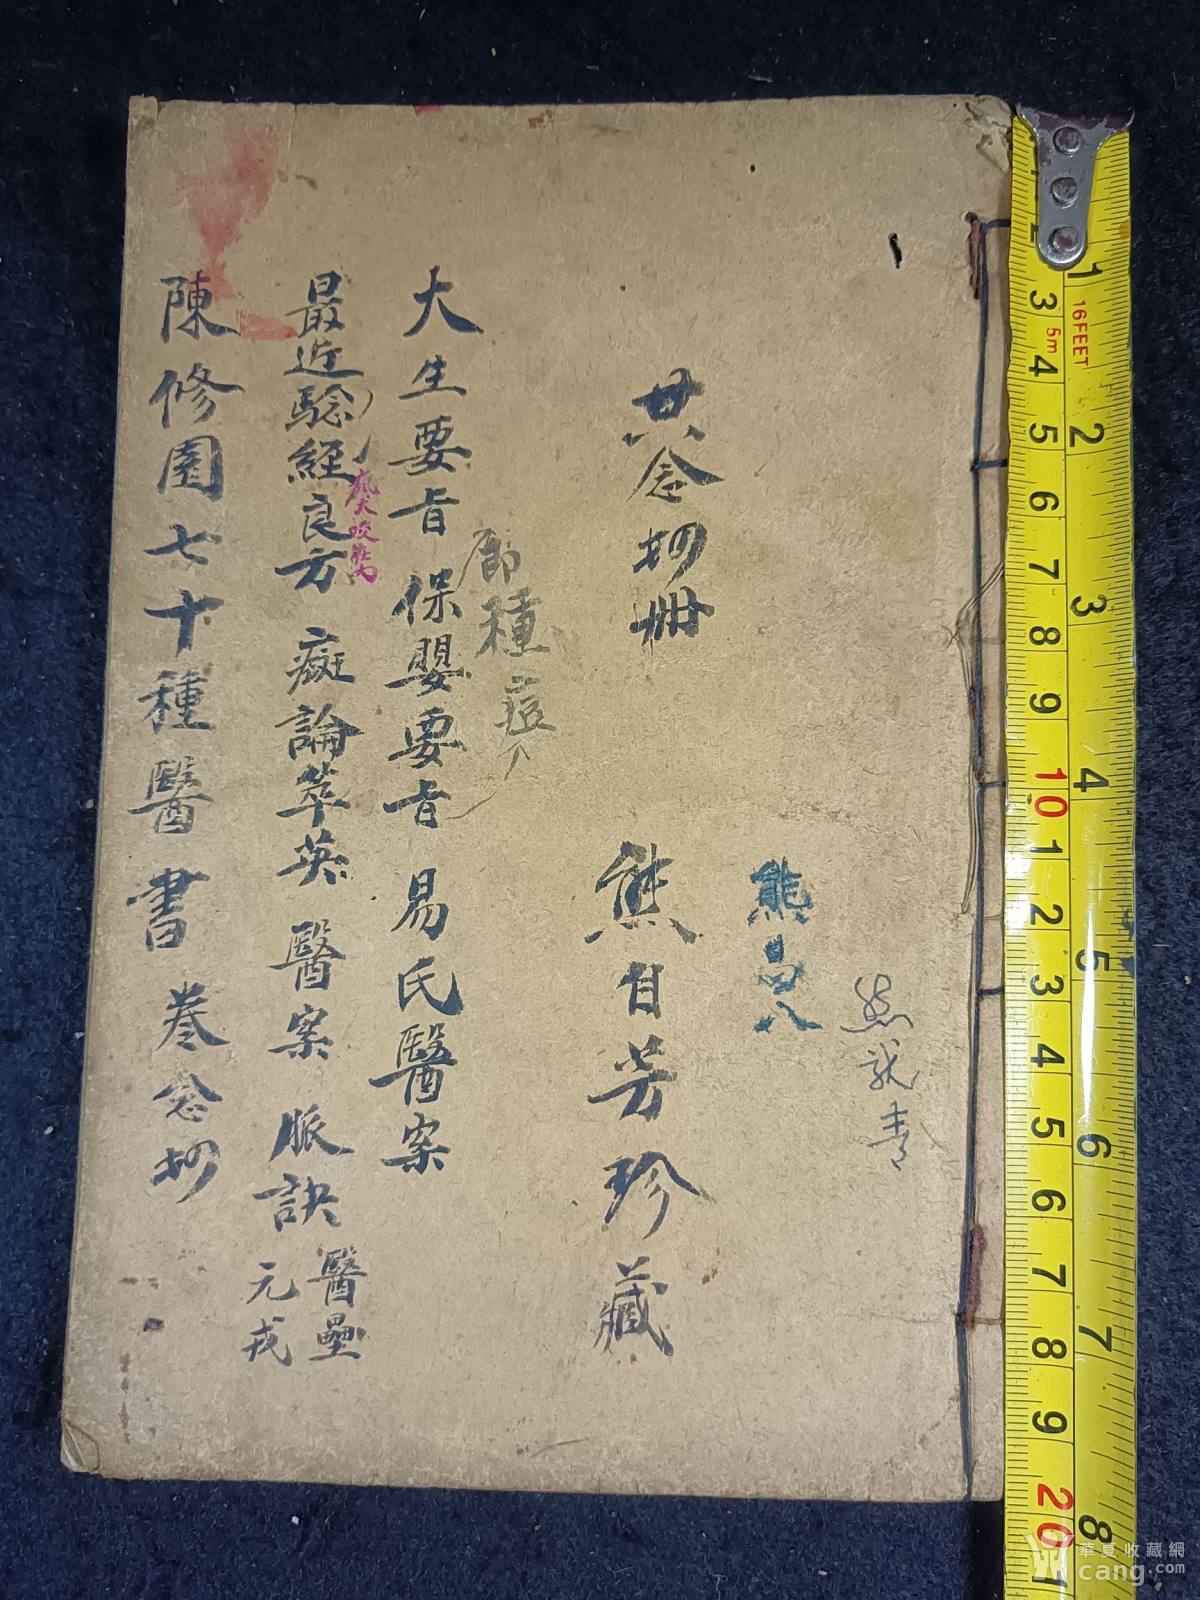 熊昌八
共叁拾册
熊自芳珍藏
即種痘
大生要旨 保嬰要旨 易氏醫案
瘋犬咬
最近驗經良方 癍論萃英 醫案 脈訣 醫壘元戎
陳修園七十種醫書 卷叁拾
16FEET
5m
1 2 3 4 5 6 7 8
2 3 4 5 6 7 8 9 10 1 2 3 4 5 6 7 8 9 20 1
華夏收藏網
cang.com